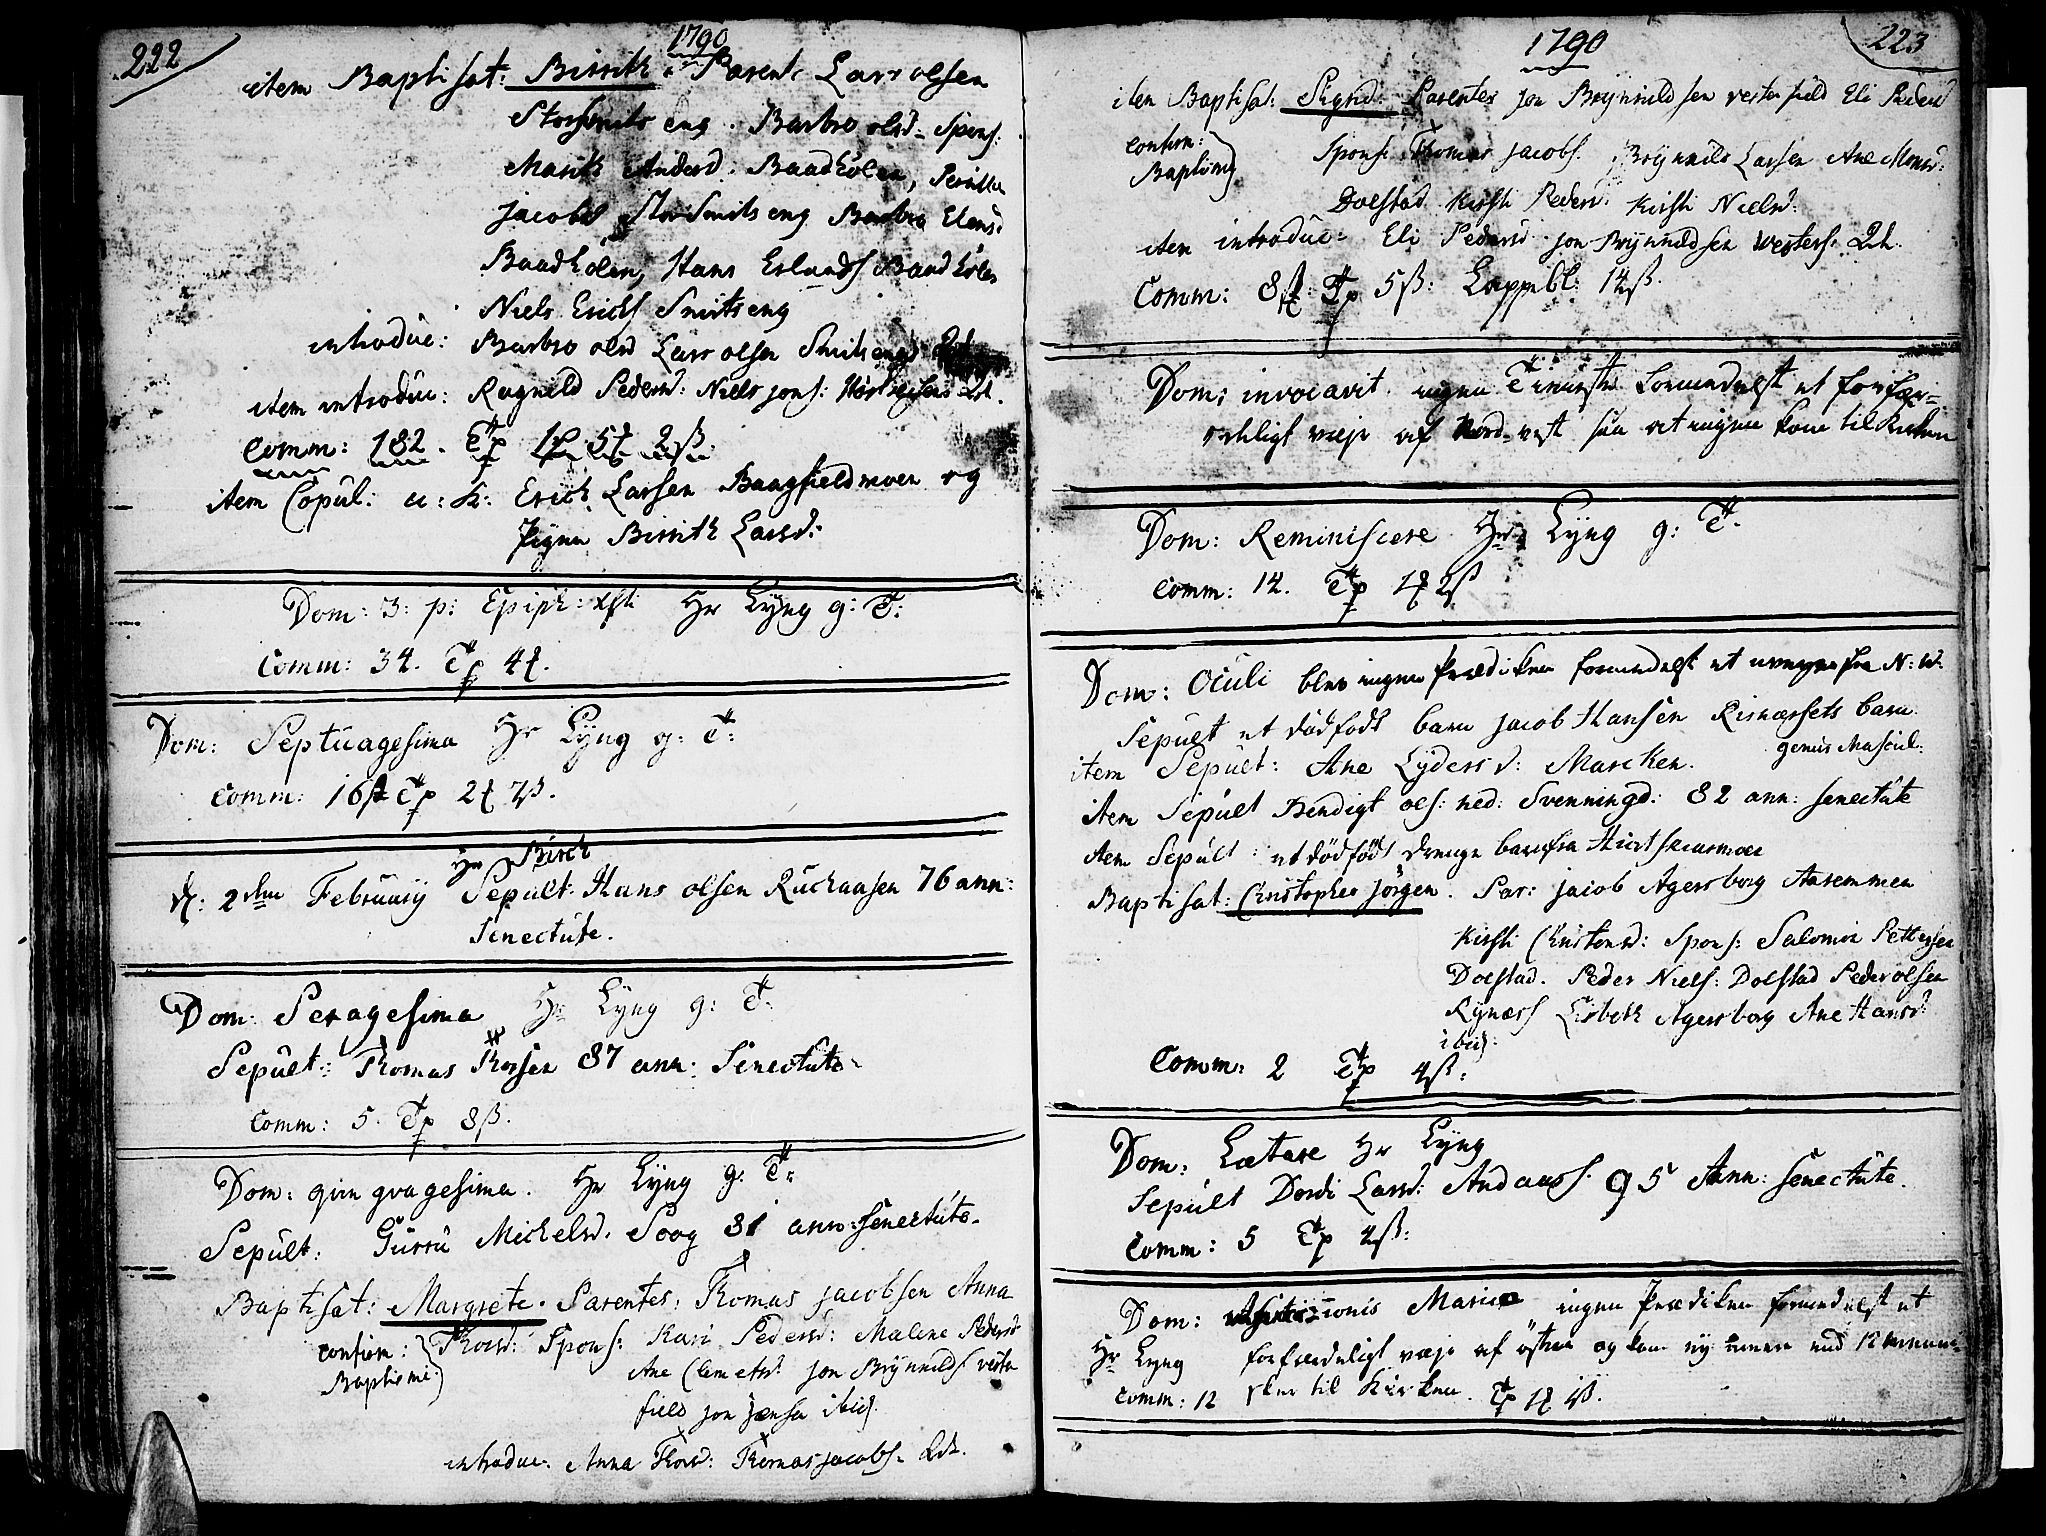 222
1790
item Baptisat: Birrith. Parent: Lars olsen
eng. Barbro olsd. Spons:
Marith Andersd. Baadhölen, Pernilla
Jacobsd Smitseng Barbro Elens:
Baadhölen, Hans Erlands Baadhölen
Niels Erichs Smitseng
introduc: Barbro olsd Lars olsen Smitseng
item introduc: Ragnild Pedersd: Niels Jons:
Comm: 182. Tp 5 2ß.
item Copul: u: K: Erich Larsen Baagfieldmoen og
Pigen Birrith Larsd:
Dom: 3: p: Epiph: Xsti Hr Lÿng g: T:
Comm: 34. Tp 4
Dom: Septuagesima Hr Lÿng g: T:
Comm: 16 Tp 2 7ß.
Hr Birch
d: 2den Februarÿ Sepult: Hans olsen Ruchaasen 76 ann:
Senectute.
Dom: Sexagesima Hr Lÿng g: T:
Sepult: Thomas Thorsen 87 ann: Senectute
Comm: 5. Tp 8ß.
Dom: qvinqvagesima. Hr Lÿng g: T:
Sepult: Gurru Michelsd. Soog 81 ann: senectute.
Baptisat: Margrete. Parentes: Thomas Jacobsen Anna
confirm: Thorsd: Spons: Kari Pedersd: Malene Pedersd
Baptismi: Ane Clemetsd. Jon Brÿnnilds vester
field Jon Jensen ibid.
introduc: Anna Thorsd: Thomas Jacobs.
1790
223
item Baptisat: Sigrid. Parentes Jon Brÿnnildsen vesterfield Eli Pedersd
confirm: Spons: Thomas Jacobs. Brÿnnild Larsen Ane Monsd:
Baptismj Dolstad Kirsti Pedersd. Kirsti Nielsd.
item introduc: Eli Pedersd Jon Brÿnnildsen vesterf.
Comm: 8 Tp 5ß: 14ß.
Dom: invocavit. ingen Tieniste formedelst et forfær-
deligt vejr af Nord-vest saa at ingen kom til Kirken
Dom: Reminiscere Hr Lÿng g: T.
Comm: 14. Tp 1 2ß
Dom: Oculi blev ingen Prædiken formedelst et uvejr fra N:W.
Sepult et dödfödt barn Jacob Hansen Risnæssets barn
genus Mascul:
item Sepult: Ane Lÿdersd: Marcken.
item Sepult Bendigt ols: ned: Svenningd: 82 ann: senectute
item Sepult et dödfödt drenge barn fra
Baptisat: Christopher Jörgen. Par: Jacob Agersborg Aaremmen
Kirsti Christensd: Spons: Salomon Pettersen
Dolstad. Peder Niels: Dolstad Peder olsen
Rÿnæss Lisbeth Agersborg Ane Hansd:
ibid.
Comm: 2 Tp 4ß:
Dom: Lætare Hr Lÿng
Sepult Dordi Larsd: Andaas. 95 Ann: senectute.
Comm: 5 Tp 2ß:
Dom: Mariæ ingen Prædiken formedelst et
Hr Lÿng forfærdeligt vejr af östen og kom ej mere end 12 menne-
Comm: 12 sker til Kirken. Tp 1